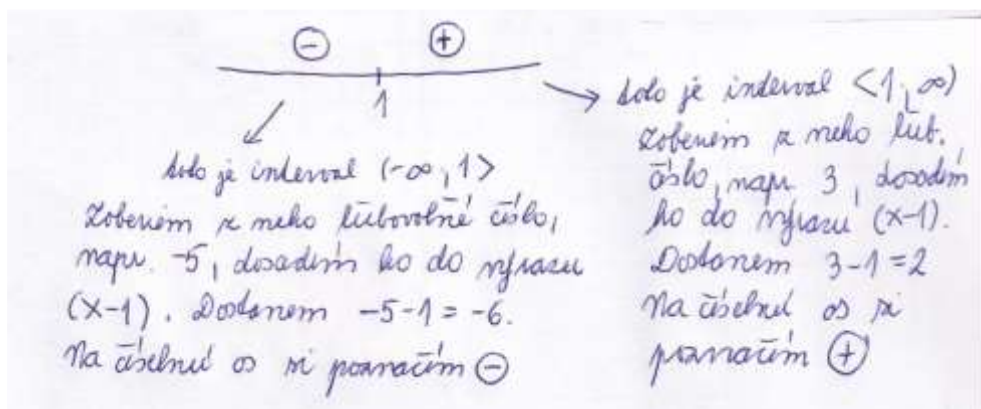 ⊖ ⊕
1
toto je interval (-∞, 1>
Zoberiem z neho ľubovoľné číslo,
napr. -5, dosadím ho do výrazu
(x-1). Dostanem -5-1 = -6.
Na číselnú os si poznačím ⊖
toto je interval <1, ∞)
Zoberiem z neho ľub.
číslo, napr. 3, dosadím
ho do výrazu (x-1).
Dostanem 3-1 = 2
Na číselnú os si
poznačím ⊕